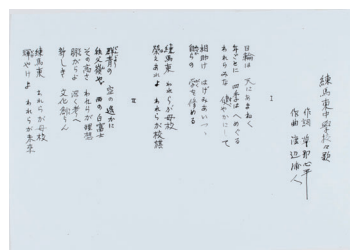 練馬東中学校々歌
作詞
作曲 渡辺浦人
I
日輪は 天にあまねく
年ごとに 四季はへめぐる
われらみな 健やかにして
相助け はげみあいつゝ
らの を修める
練馬東 われらが母校
栄えあれよ われらが校
II
群青の 空の遥かに
秩父嶺や 西の白富士
その高さ われらが理想
朗がらよ 深く考へ
新しき 文化創らん
練馬東 われらが母校
輝やけよ われらが未来